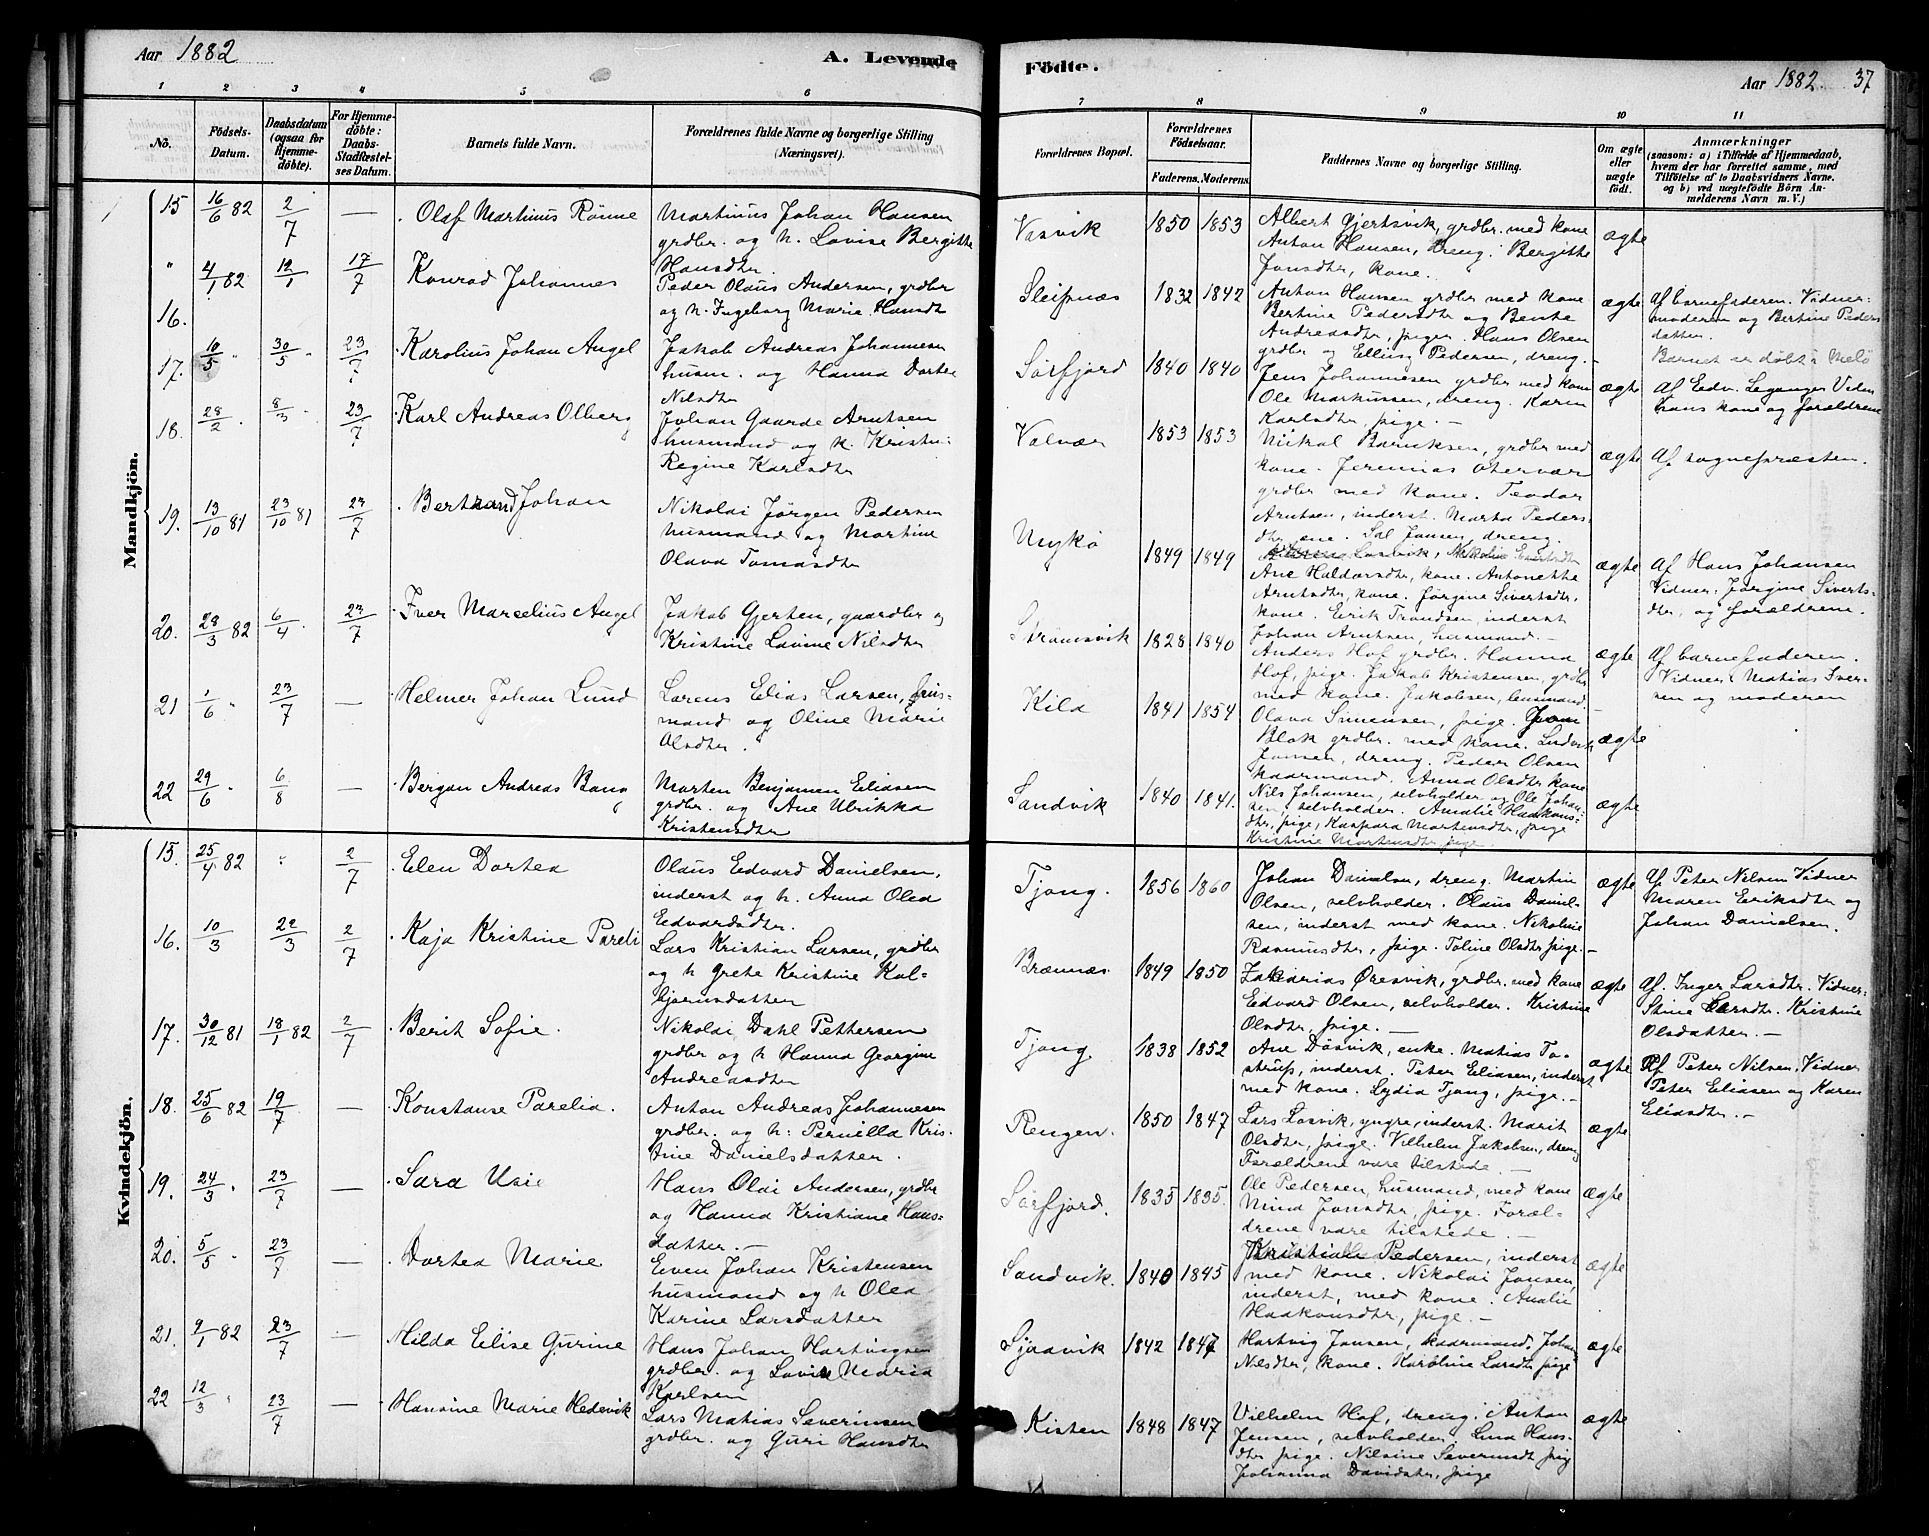 Aar 1882
A. Levende Födte.
Aar 1882 37
1 2 3 4 5 6 7 8 9 10 11
No.
Födsels-Datum.
Daabsdatum (ogsaa for Hjemmedöbte).
For Hjemmedöbte: Daabs-Stadfæstelses Datum.
Barnets fulde Navn.
Forældrenes fulde Navne og borgerlige Stilling (Næringsvei).
Forældrenes Bopæl.
Forældrenes Födselsaar.
Faderens. Moderens.
Faddernes Navne og borgerlige Stilling.
Om ægte eller uægte födt.
Anmærkninger
(saasom: a) i Tilfælde af Hjemmedaab,
hvem der har forrettet samme, med
Tilföielse af to Daabsvidners Navne.
og b) ved uægtefödte Börn Anmelderens Navn m. V.)
Mandkjön.
15 16/6 82 2/7 — Olaf Martinus Rönne
Martinus Johan Hansen
grdbr. og h. Lovise Bergitte
Hansdtr.
Vasvik 1850 1853
Albert Gjertsvik, grdbr. med kone
Anton Hansen, dreng. Bergitte
Jonsdtr, kone.
ægte
16. 4/1 82 12/1 17/7 Konrad Johannes
Peder Olaus Andersen, grdbr
og h. Ingeborg Marie Hansdtr
Sleipnæs 1832 1842
Anton Hansen grdbr med kone
Bertine Pedersdtr og Bente
Andreasdtr, piger. Hans Olsen
grdbr og Elling Pedersen, dreng.
ægte
Af barnefaderen. Vidner:
moderen og Bertine Pedersdatter.
17. 10/5 " 30/5 " 23/7 Karolius Johan Angel
Jakob Andreas Johannesen
husm. og Hanna Dortea
Nilsdtr
Sörfjord 1840 1840
Jens Johannesen grdbr med kone
Ole Markussen, dreng. Karen
Karlsdtr, pige. —
ægte
Barnet er döbt i Melö
Af Edv. Leganger Vidn
hans kone og forældrene
18. 28/2 " 8/3 " 23/7 Karl Andreas Olberg
Johan Gaarde Arntsen
husmand og h. Kristn:
Regine Karlsdtr
Valvær 1853 1853
Mikal Bariksen, grdbr med
kone. Jeremias Otervær
grdbr med kone. Teodor
Arntsen, inderst. Marta Pedersdtr
kone. Sal Jansen dreng.
ægte
Af sognepræsten.
19. 13/10 81 23/10 81 23/7 Bertrand Johan
Nikolai Jörgen Pedersen
husmand og Martine
Olava Tomasdtr
Mykö 1849 1849
Ane Haldorsdtr, kone. Antonette
Arntsdtr, kone. Jörgine Sivertsdtr,
kone. Erik Trondsen, inderst
Johan Arntsen, husmand. —
ægte
Af Hans Johansen
Vidner: Jörgine Sivertsdtr, og forældrene.
20. 28/3 82 6/4 " 23/7 Iver Marcelius Angel
Jakob Gjerten, gaardbr og
Kristine Lovine Nilsdtr
Strömsvik 1828 1840
Anders Hof grdbr. Hanna
Hof, pige. Jakob Kristensen, grdbr
med kone. Jakobsen, lensmand.
ægte
Af barnefaderen.
Vidner: Matias Iversen og moderen
21 1/6 " 23/7 — Helmer Johan Lund
Lorens Elias Larsen, husmand og Oline Marie
Olsdtr.
Kila 1841 1854
Olava Simensen, pige.
Blok grdbr. med kone. Ludvik
Jonsen, dreng. Peder Olsen
kaarmand. Anna Olsdtr kone
ægte
22 29/6 " 6/8 — Bergan Andreas Bang
Morten Benjamen Eliasen
grdbr. og Ane Ulrikka
Kristensdtr
Sandvik 1840 1841.
Nils Johansen, selvholder og Ole Johansen, selvholder. Amalie Haakonsdtr, pige, Kaspara Mortensdtr, pige
Kristine Mortensdtr pige
ægte
Kvindekjön.
15. 25/4 82 " 2/7 Elen Dortea
Olaus Edvard Danielsen,
inderst og h. Anna Olea
Edvardsdtr.
Tjong. 1856 1860
Johan Danielsen, dreng. Martin
Olsen, selvholder. Olaus Danielsen, inderst med kone. Nikoline
Rasmusdtr, pige. Toline Olsdtr pige. —
ægte
Af Peter Nilsen Vidner
Maren Eriksdtr og
Johan Danielsen.
16. 10/3 22/3 2/7 Kaja Kristine Pareli
Lars Kristian Larsen, grdbr
og h Grete Kristine Kolbjörnsdatter
Brænnæs 1849 1850
Zakarias Øresvik, grdbr. med kone
Edvard Olsen, selvholder. Kristine
Olsdtr, pige. —
ægte
Af. Inger Larsdtr. Vidner:
Stine Larsdtr. Kristine
Olsdatter. —
17. 30/12 81 18/1 82 2/7 Berit Sofie.
Nikolai Dahl Pettersen
grdbr og h Hanna Georgine
Andreasdtr
Tjong 1838 1852
Ane Döevik, enke. Matias Tostrup, inderst. Peter Eliasen, inderst
med kone. Lydia Tjong, pige. —
ægte
Af Peter Nilsen, Vidner
Peter Eliasen og Karen
Eliasdtr. —
18. 25/6 82 19/7 — Konstanse Parelia.
Anton Andreas Johannesen
grdbr. og h: Pernilla Kristine Danielsdatter.
Rengen. 1850 1847
Lars Losvik, yngre, inderst. Marit
Olsdtr, pige. Vilhelm Jakobsen, dreng
Forældrene vare tilstede. —
ægte
19. 24/3 " 23/7 — Sara Usie
Hans Olai Andersen, grdbr
og Hanna Kristiane Hansdatter. —
Sörfjord. 1835 1835.
Ole Pedersen, husmand, med kone
Mina Jonsdtr, pige. Forældrene vare tilstede. —
ægte
20. 5/5 " 23/7 — Dortea Marie
Even Johan Kristensen
husmand og h Olea
Karine Larsdatter
Sandvik. 1840 1845
Kristian Pedersen, inderst
med kone. Nikolai Jonsen,
inderst, med kone. Amalie
Haakonsdtr, pige. —
ægte
21. 9/1 82 23/7 — Hilda Elise Gurine
Hans Johan Hartvigsen
grdbr. og Lovise Maria
Karlsen
Sjaavik 1842 1847
Hartvig Jansen, kaarmand, Johan
Nilsdtr, kone. Karoline Larsdtr pige
ægte
22 12/3 " 23/7 — Hansine Marie Hedevik
Lars Matias Severinsen
grdbr. og Guri Hansdtr
Kisten 1848 1847
Vilhelm Hof, dreng. Anton
Jensen, selvholder. Lina Hansdtr pige. Nilsine Severinsdtr pig
Johanna Davidsdtr, pige
ægte